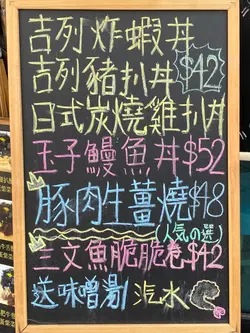 吉列炸蝦丼
吉列豬扒丼 $42
日式炭燒雞扒丼
玉子鰻魚丼 $52
豚肉生薑燒 $48
(人気の選)
三文魚脆脆卷 $42
送味噌湯/汽水